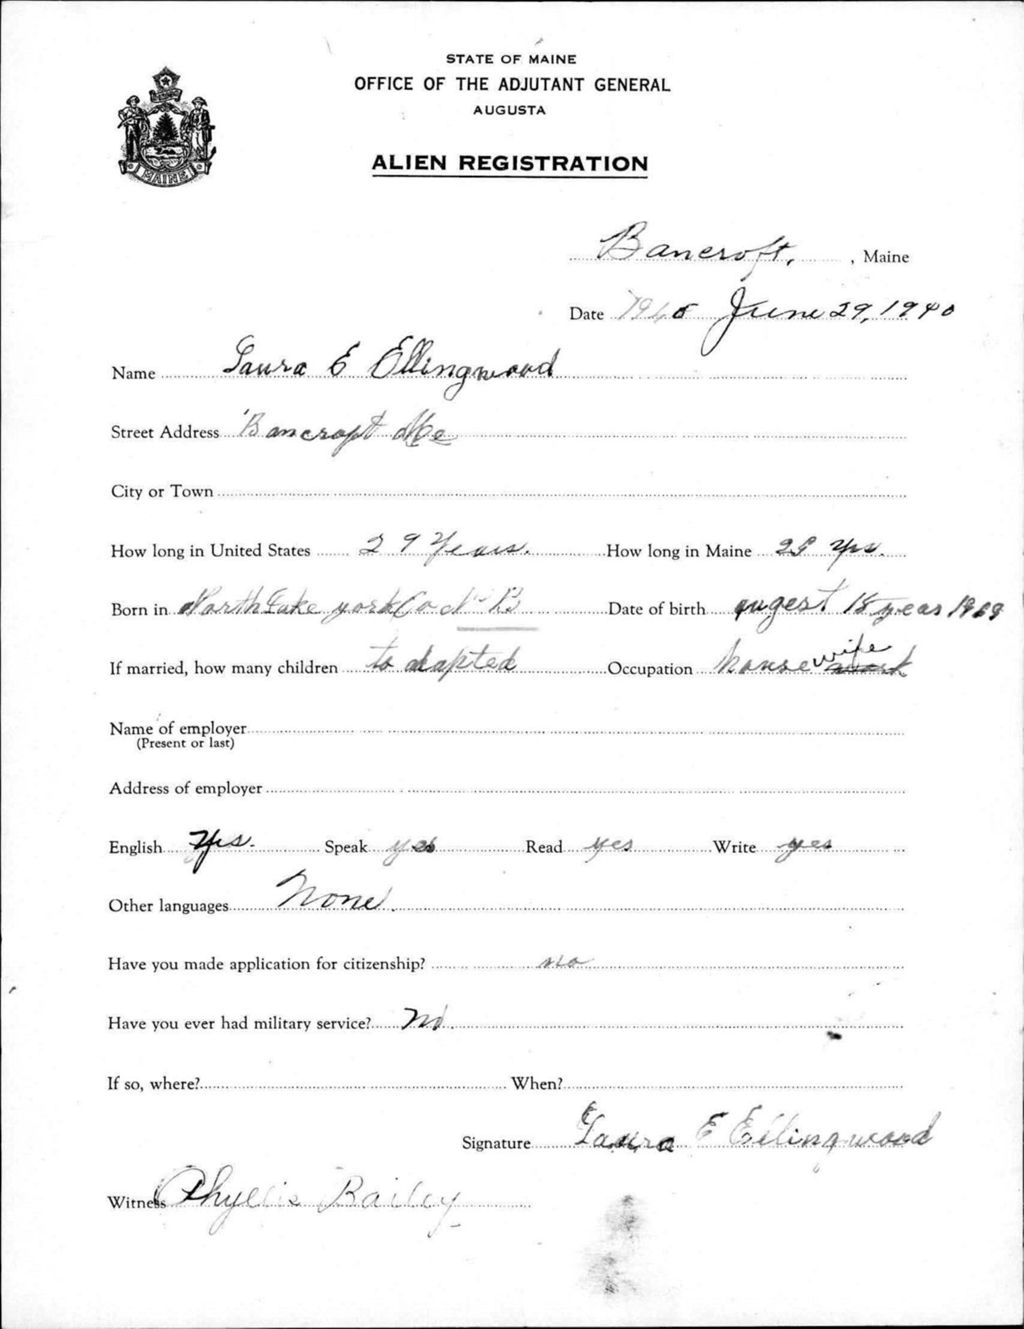 STATE OF MAINE
OFFICE OF THE ADJUTANT GENERAL
AUGUSTA
MAINE
ALIEN REGISTRATION
Bancroft, , Maine
Date 1940 June 29, 1940
Name Laura E Ellingwood
Street Address Bancroft Me
City or Town
How long in United States 29 Years. How long in Maine 29 yrs.
Born in North Lake york Co N B Date of birth augest 18 year
If married, how many children to adapted Occupation house wife work
Name of employer
(Present or last)
Address of employer
English Yes. Speak yes Read yes Write yes
Other languages None.
Have you made application for citizenship? no
Have you ever had military service? No.
If so, where? When?
Signature Laura E Ellingwood
Witness Phyllis Bailey